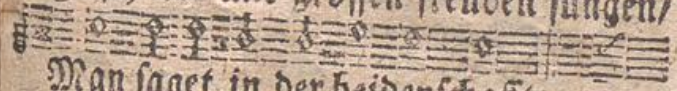 grossen freuden sungen/
Man saget in der heidenschafft